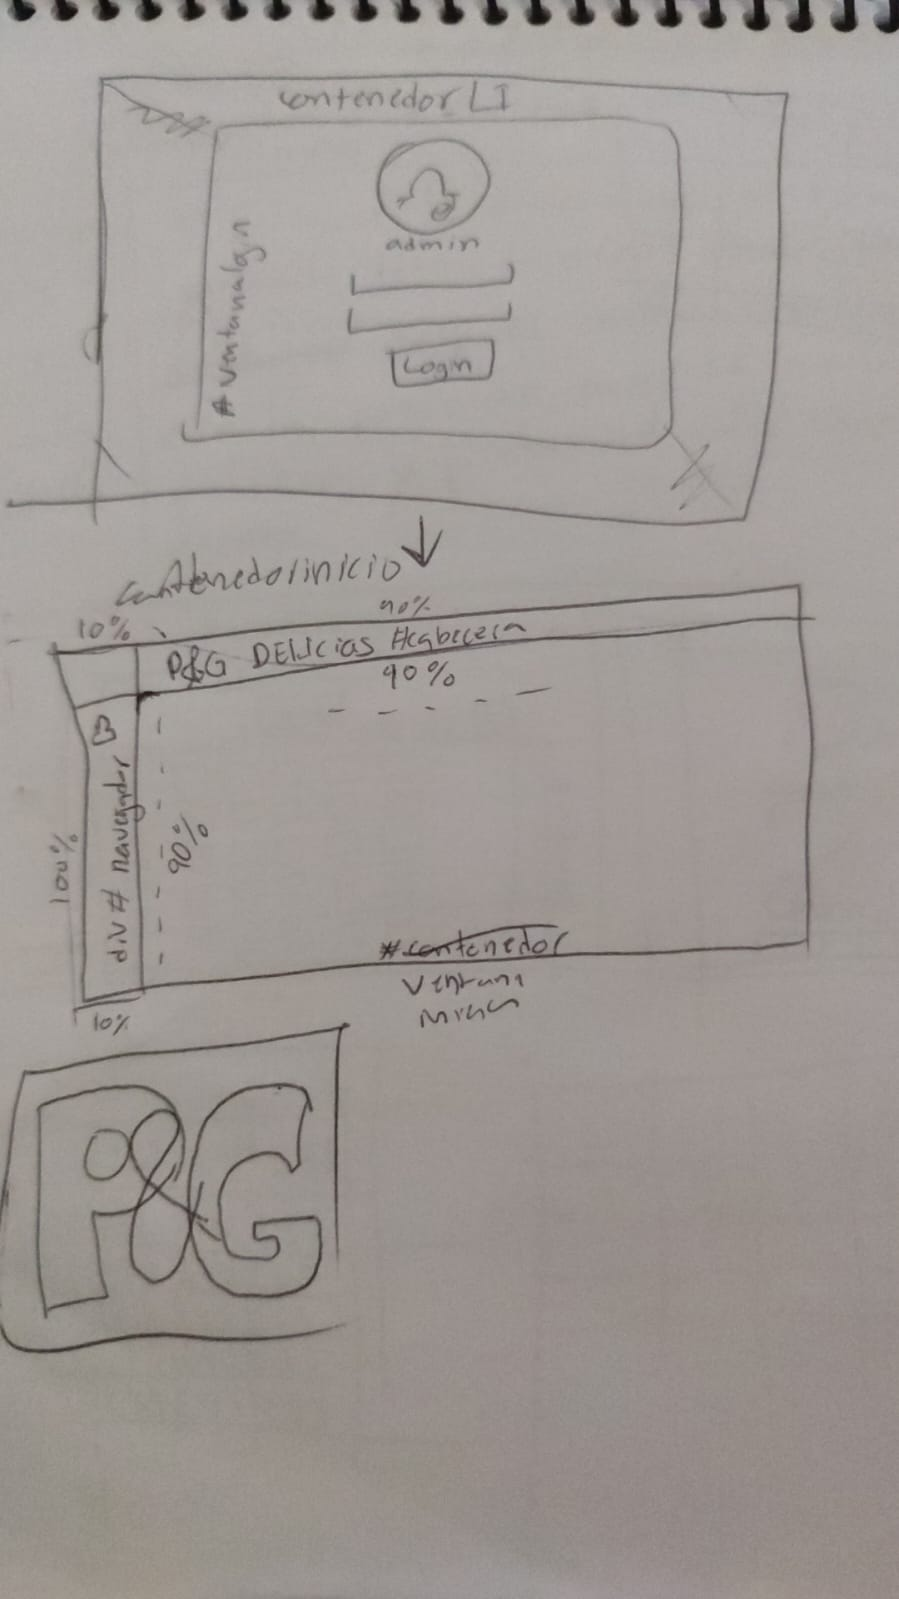 contenedor LI
admin
#ventanalogin
Login
contenedorinicio
90%
10%
P&G DELICIAS #cabecera
90%
div # navegador
100%
90%
#contenedor
Ventana
10%
P&G